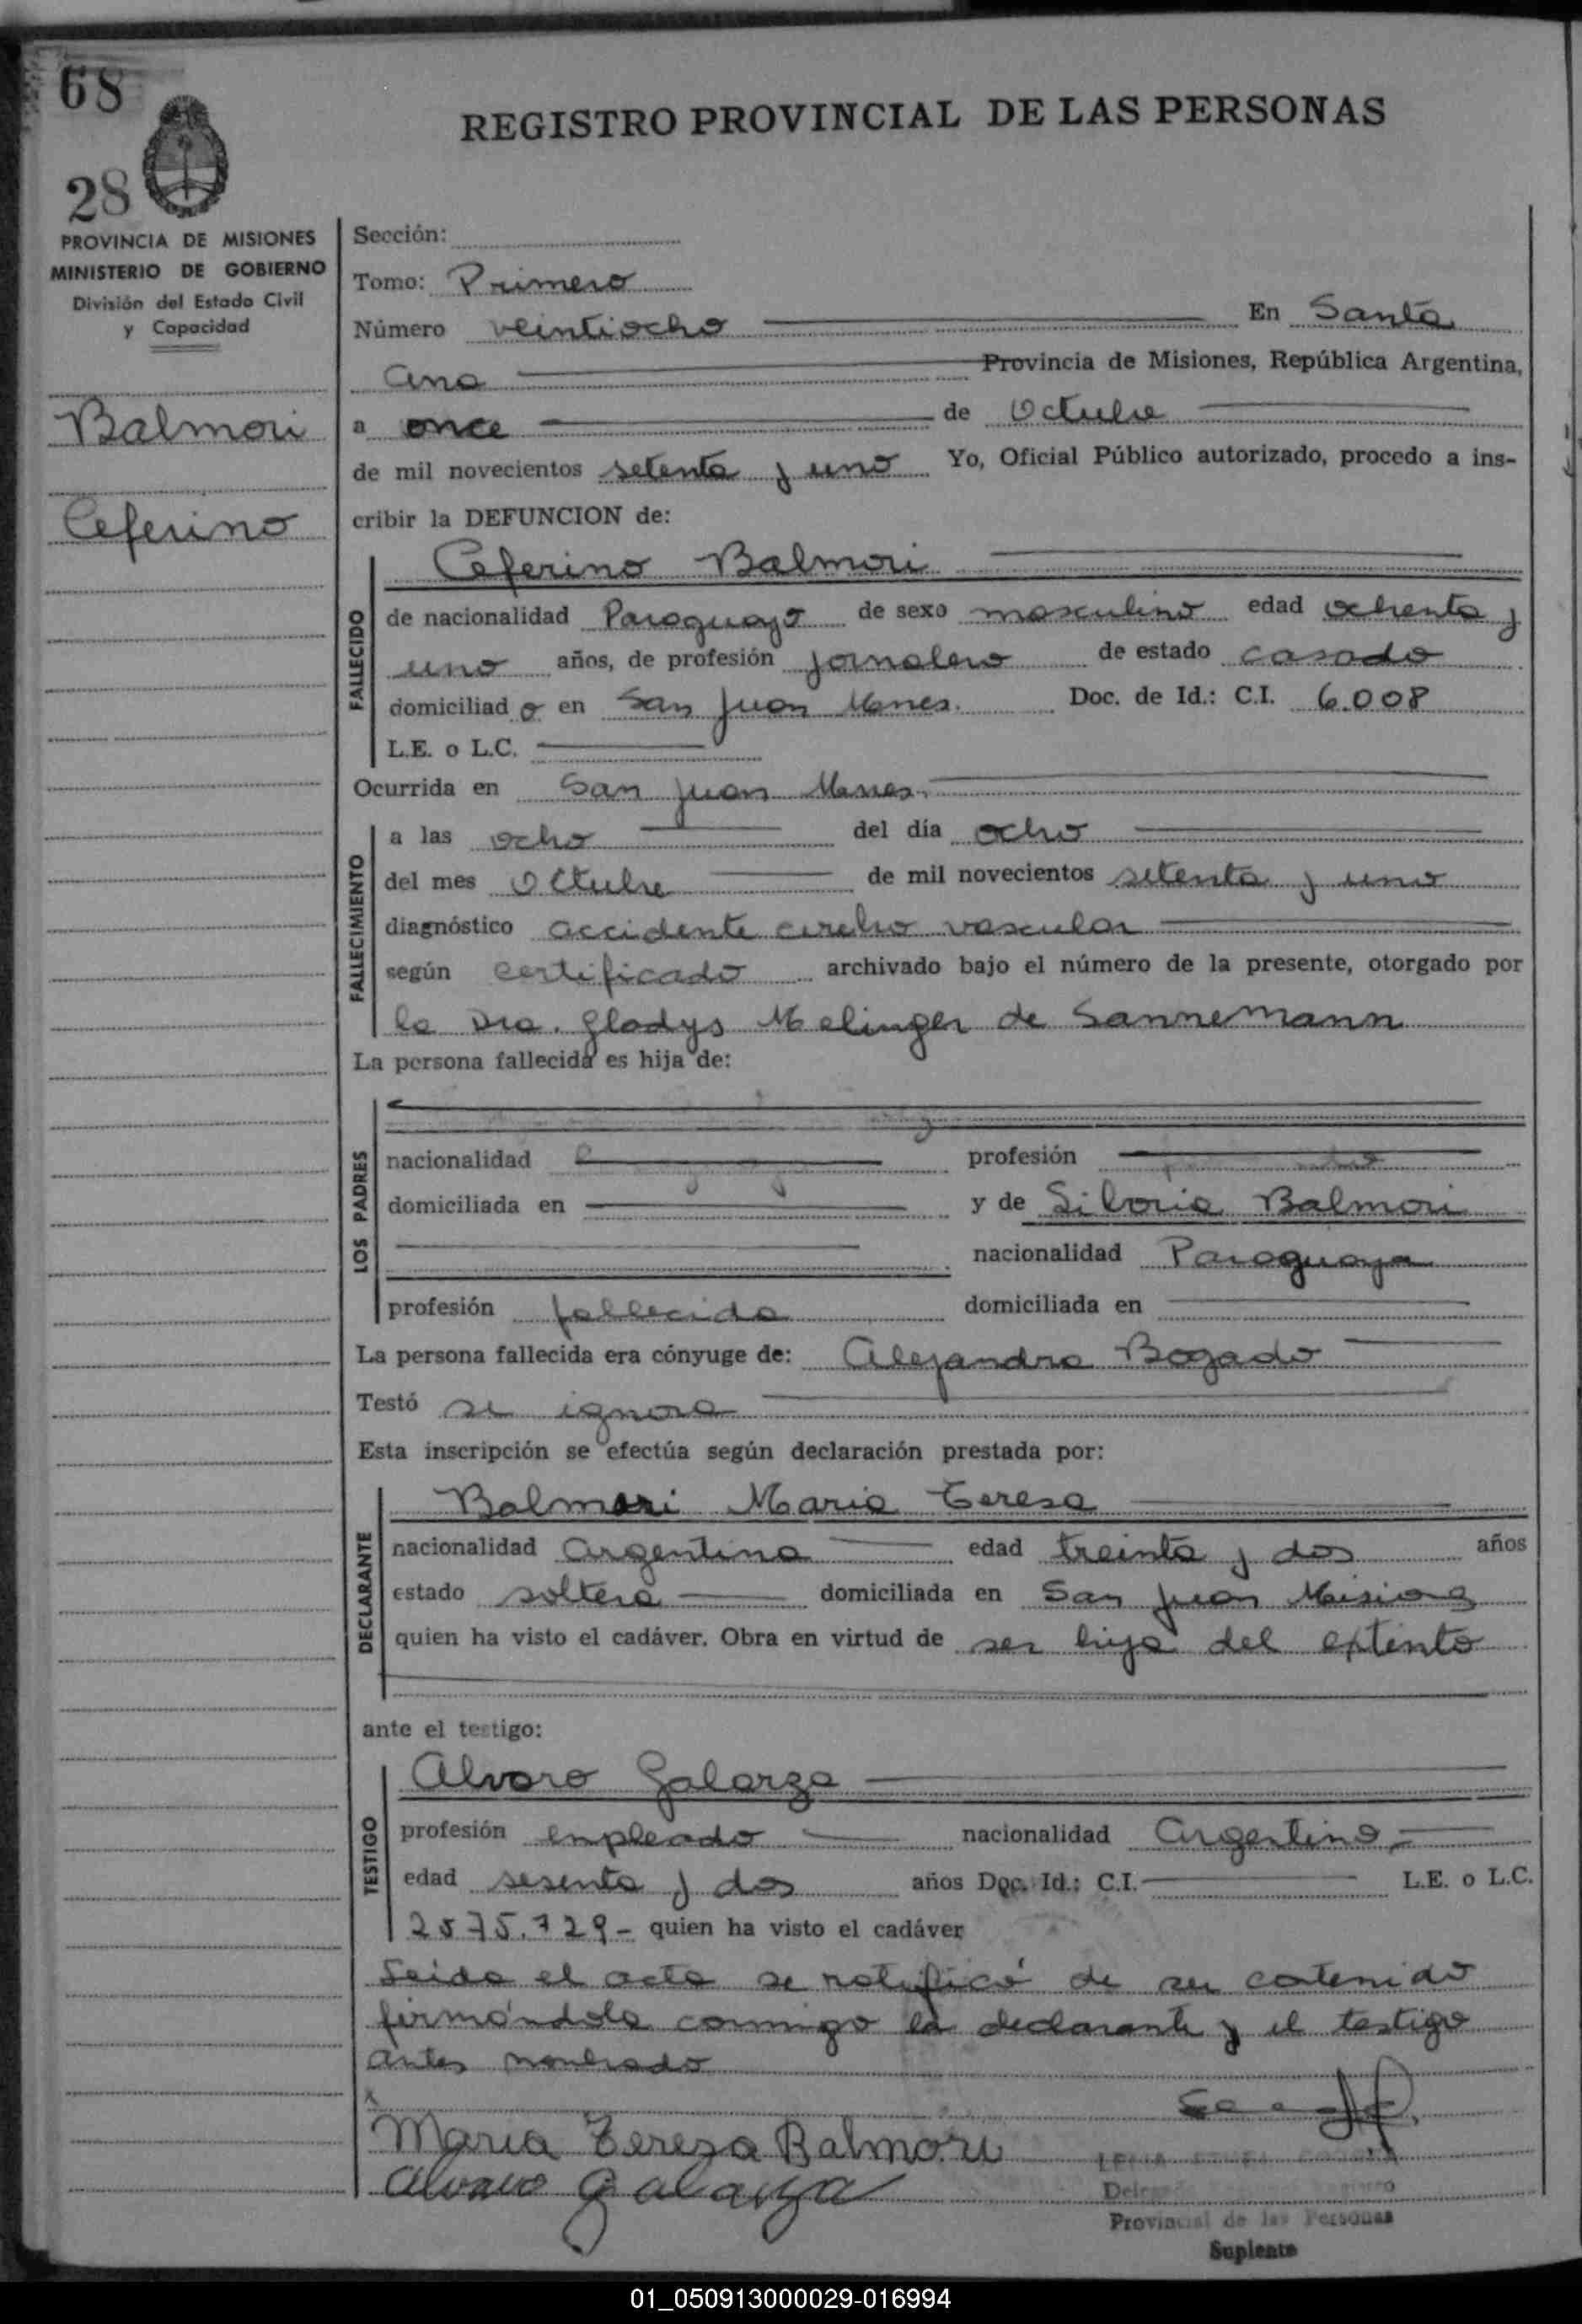 68
28
REGISTRO PROVINCIAL DE LAS PERSONAS
PROVINCIA DE MISIONES
MINISTERIO DE GOBIERNO
División del Estado Civil
y Capacidad
Balmori
Ceferino
Sección:
Tomo: Primero
Número veintiocho En Santa
Ana Provincia de Misiones, República Argentina,
a once de Octubre
de mil novecientos setenta y uno Yo, Oficial Público autorizado, procedo a ins-
cribir la DEFUNCION de:
FALLECIDO
Ceferino Balmori
de nacionalidad Paraguayo de sexo masculino edad ochenta y
uno años, de profesión jornalero de estado casado
domiciliado en San Juan Mnes. Doc. de Id.: C.I. 6.008
L.E. o L.C.
Ocurrida en San Juan Mnes.
FALLECIMIENTO
a las ocho del día ocho
del mes Octubre de mil novecientos setenta y uno
diagnóstico accidente cerebro vascular
según certificado archivado bajo el número de la presente, otorgado por
la Dra. Gladys Melinger de Sannemann
La persona fallecida es hija de:
LOS PADRES
nacionalidad profesión
domiciliada en y de Siboria Balmori
nacionalidad Paraguaya
profesión fallecida domiciliada en
La persona fallecida era cónyuge de: Alejandra Bogado
Testó se ignora
Esta inscripción se efectúa según declaración prestada por:
DECLARANTE
Balmori Maria Teresa
nacionalidad Argentina edad treinta y dos años
estado soltera domiciliada en San Juan Misiones
quien ha visto el cadáver. Obra en virtud de ser hija del extinto
ante el testigo:
TESTIGO
Alvaro Galarza
profesión enpleado nacionalidad Argentino
edad sesenta y dos años Doc. Id.: C.I. L.E. o L.C.
2575.729- quien ha visto el cadáver
Leida el acta se notificó de su contenido
firmándola conmigo la declarante y el testigo
antes nombrado
Maria Tereza Balmori
Alvaro Galarza
Provincial de las Personas
Suplente
01_050913000029-016994